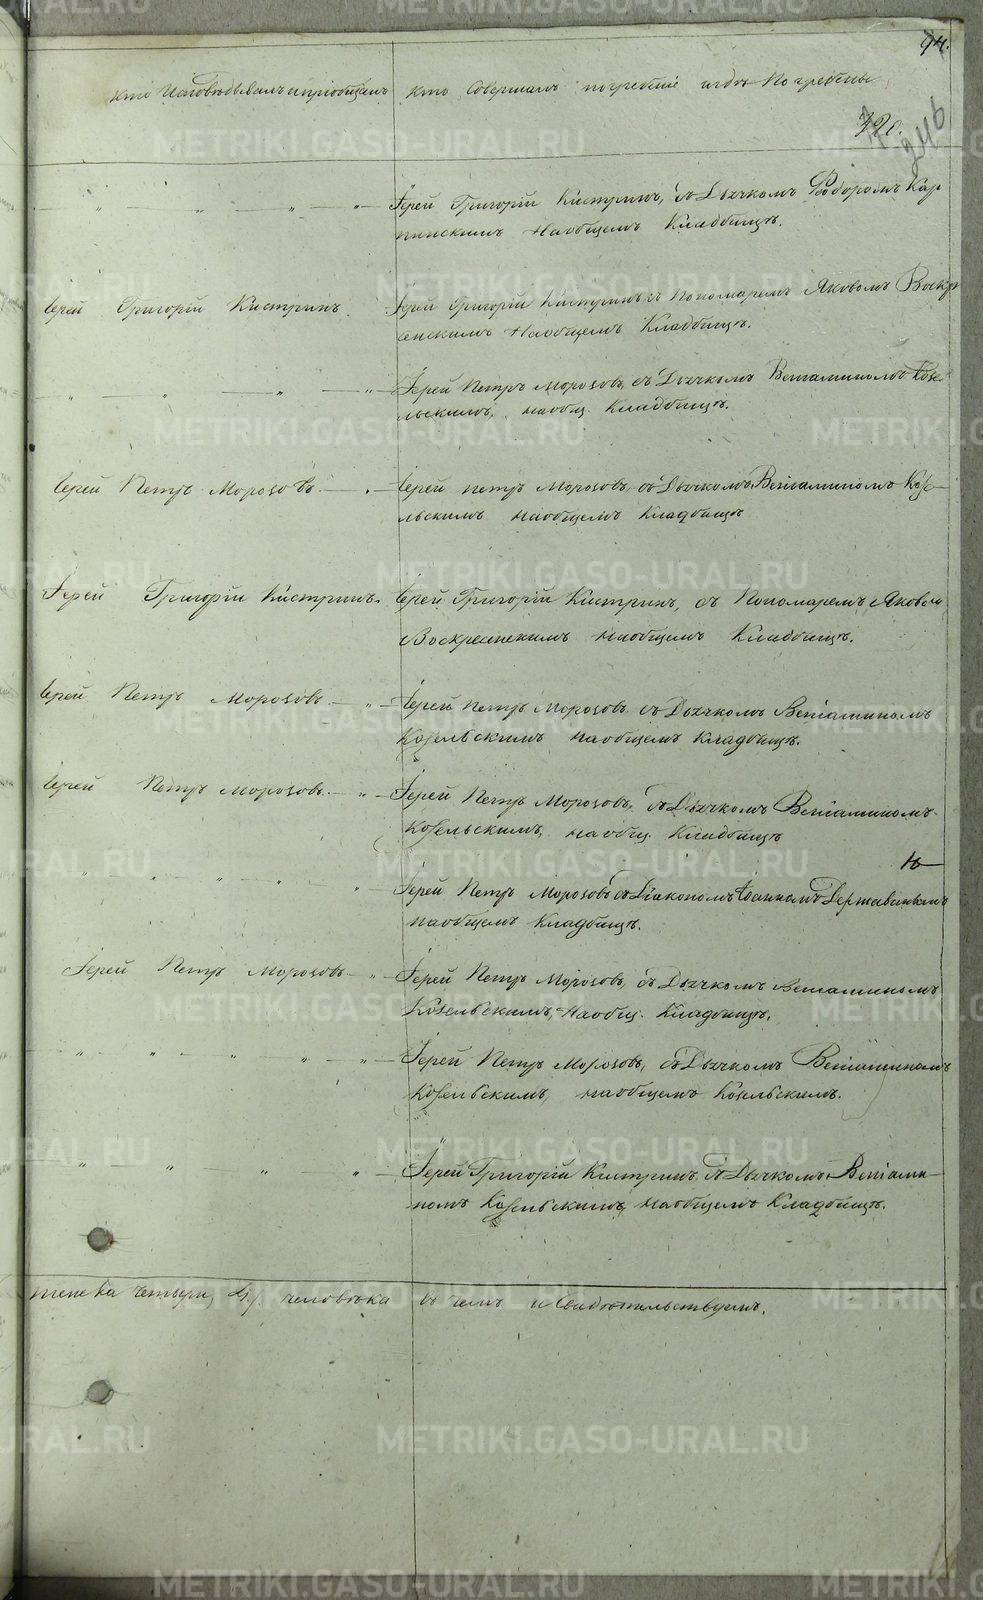 94.
Кто Исповѣдывалъ и пріобщалъ
Кто Совершалъ погребеніе и гдѣ Погребены
720.
246
" " " "
Іерей Григорій Кистринъ, съ Дьячкомъ Ѳеодоромъ Кар
пинскимъ На общемъ Кладбищѣ.
Іерей Григорій Кистринъ
Іерей Григорій Кистринъ съ Пономаремъ Яковомъ Воскре
сенскимъ На общемъ Кладбищѣ.
" " " "
Іерей Петръ Морозовъ, съ Дьячкомъ Веніаминомъ Козе
льскимъ, на общ. Кладбищѣ.
Іерей Петръ Морозовъ "
Іерей петръ Морозовъ, съ Дьячкомъ Веніаминомъ Козе
льскимъ на общемъ Кладбищѣ
Іерей Григорій Кистринъ.
Іерей Григорій Кистринъ, съ Пономаремъ Яковомъ
Воскресенскимъ на общемъ Кладбищѣ.
Іерей Петръ Морозовъ "
Іерей Петръ Морозовъ съ Дьячкомъ Веніаминомъ
Козельскимъ на общемъ кладбищѣ.
Іерей Петръ Морозовъ "
Іерей Петръ Морозовъ, съ Дьячкомъ Веніаминомъ
Козельскимъ, на общ. Кладбищѣ
" " " "
Іерей Петръ Морозовъ съ Діакономъ Іоанномъ Державинымъ
на общемъ Кладбищѣ.
Іерей Петръ Морозовъ "
Іерей Петръ Морозовъ, съ Дьячкомъ Веніаминомъ
Козельскимъ, На общ. Кладбищѣ.
" " " " "
Іерей Петръ Морозовъ, съ Дьячкомъ Веніаминомъ
Козельскимъ, на общемъ Козельскимъ.
" " " "
Іерей Григорій Кистринъ, съ Дьячкомъ Веніами
номъ Козельскимъ, на общемъ Кладбищѣ.
четыре, 4. человѣка
въ чемъ и Свидѣтельствуемъ.
METRIKI.GASO-URAL.RU